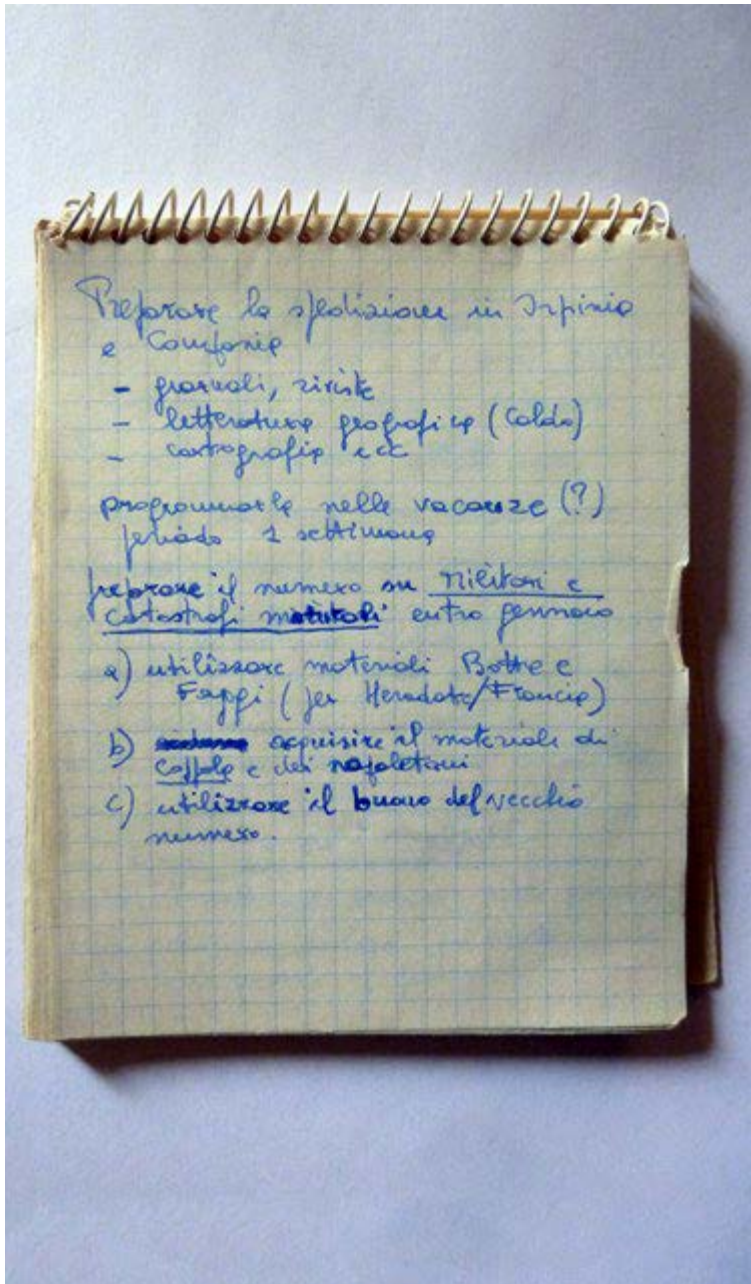 Preparare la spedizione in Irpinia
e Campania
- giornali, riviste
- letteratura geografica (Caldo)
- cartografia ecc
programmarla nelle vacanze (?)
periodo 1 settimana
preparare il numero su Militari e
catastrofi naturali entro gennaio
a) utilizzare materiali Botte e
(per Herodote/Francia)
b) acquisire il materiale di
Coppola e dei napoletani
c) utilizzare il buono del vecchio
numero.